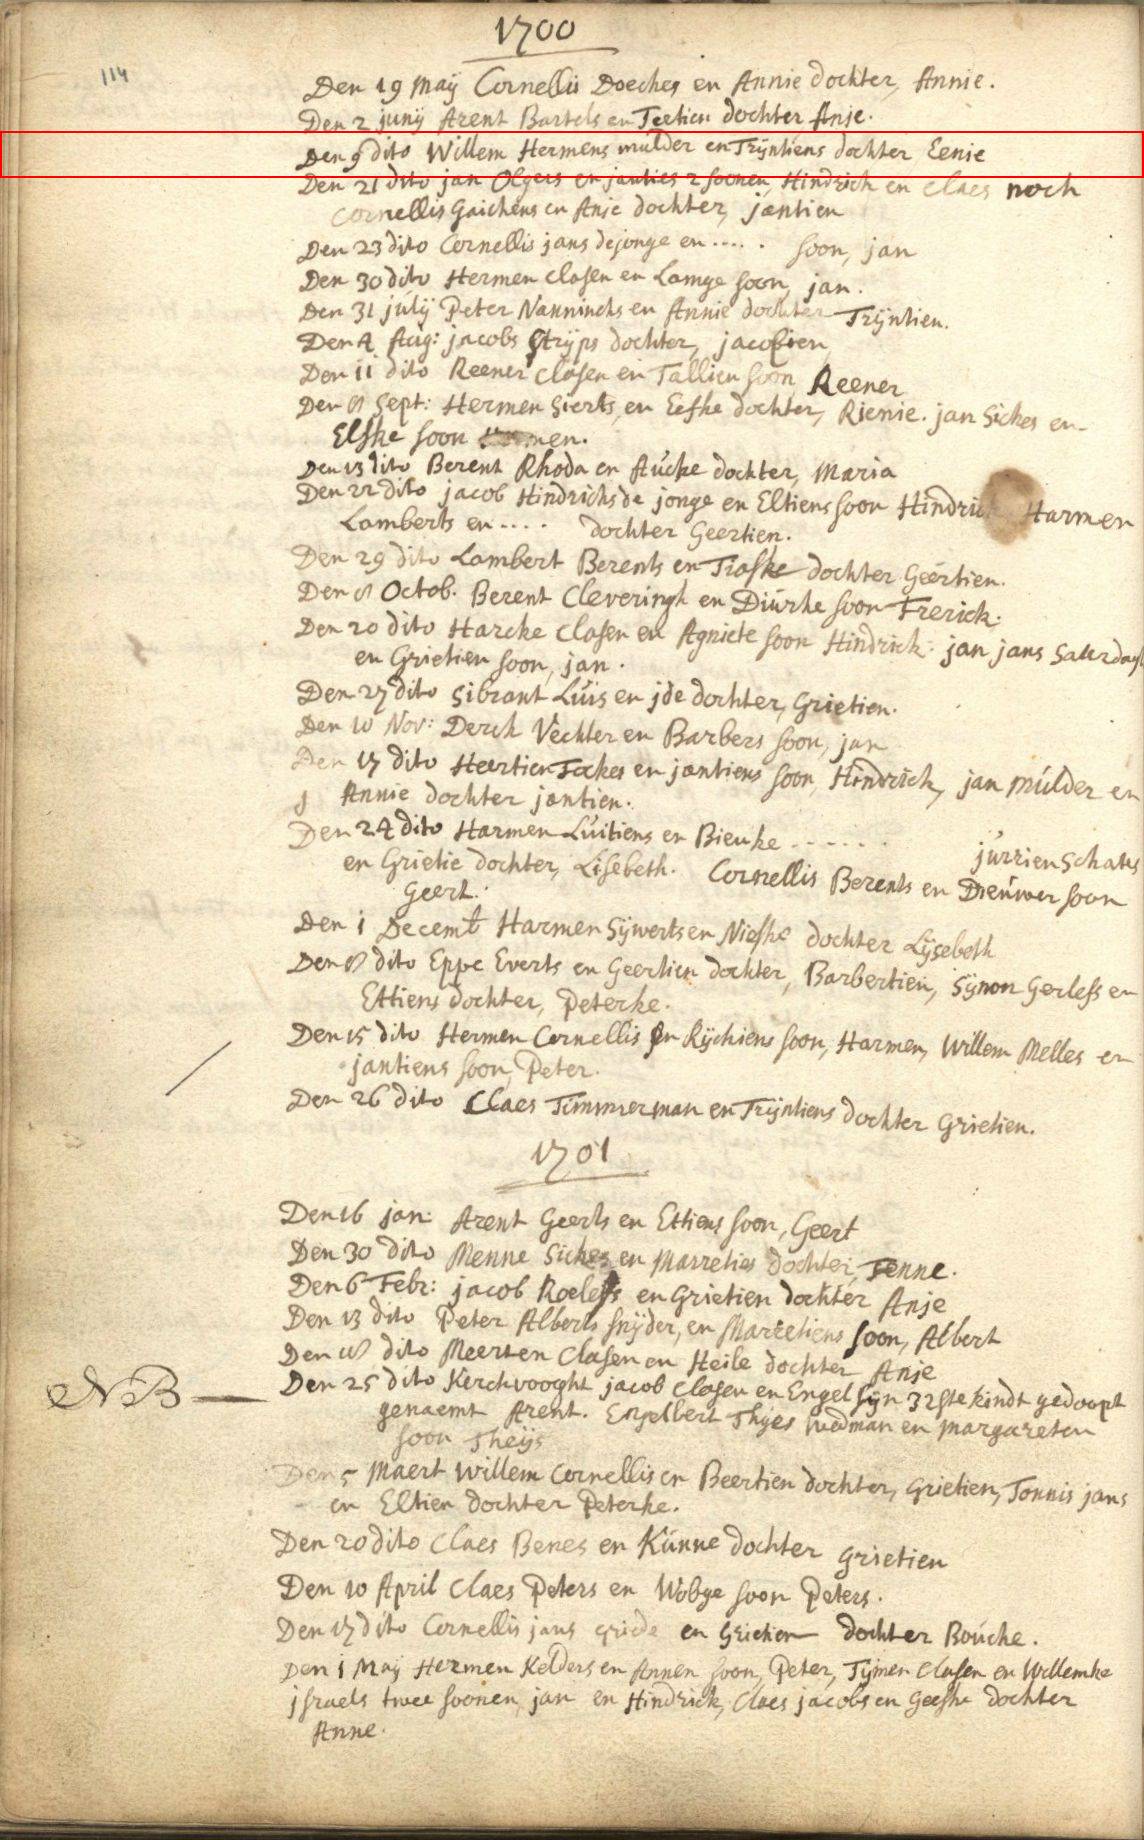 1700
114
Den 19 Maij Cornellis Doeches en Annie dochter, Annie.
Den 2 junij Arent Bartels en Teetien dochter Anje.
Den 9 dito Willem Hermens mulder en Trijntiens dochter Eenie
Den 21 dito jan Olgers en janties 2 soonen, Hindrich en Claes noch
Cornellis Gaichens en Anje dochter, jantien
Den 23 dito Cornellis jans de jonge en ..... soon, jan
Den 30 dito Hermen Clasen en Lamge soon, jan.
Den 31 julij Peter Nanninchs en Annie dochter Trijntien.
Den 4 Aug: jacobs Strijps dochter, jacobien
Den 11 dito Reener Clasen en Tallien soon Reener
Den 8 Sept: Hermen Sierts, en Eefke dochter, Rienie. jan Sickes en
Elske soon
Den 13 dito Berent Rhoda en Aucke dochter, Maria
Den 22 dito jacob Hindrichs de jonge en Eltiens soon Hindrick Harmen
Lamberts en .... dochter Geertien.
Den 29 dito Lambert Berents en Tiaske dochter Geertien.
Den 8 Octob. Berent Cleveringh en Diurke soon Frerick.
Den 20 dito Harcke Clasen en Agniete soon Hindrick. jan jans Saturdagh
en Grietien soon, jan.
Den 27 dito Sibrant Luis en jde dochter, Grietien.
Den 10 Nov: Derck Vechter en Barbers soon, jan
Den 17 dito Heertien Fockes en jantiens soon, Hindrick, jan mulder en
Annie dochter jantien.
Den 24 dito Harmen Luitiens en Bieuke ...... jurrien Schates
en Grietie dochter, Lisebeth. Cornellis Berents en Dieuwer soon
Geert.
Den 1 Decemb Harmen Sijwerts en Nieske dochter Lijsebeth
Den 8 dito Eppe Everts en Geertien dochter, Barbertien, Sijmon Gerlefs en
Ettiens dochter, Peterke.
Den 15 dito Hermen Cornellis en Rijchiens soon, Harmen, Willem Melles en
jantiens soon, Peter.
Den 26 dito Claes Timmerman en Trijntiens dochter Grietien.
1701
Den 16 jan: Arent Geerts en Ettiens soon, Geert
Den 30 dito Menne Sickes en Marreties dochter, Fenne.
Den 6 Febr: jacob Roelefs en Grietien dochter Anje
Den 13 dito Peter Alberts snijder, en Marretiens soon, Albert
Den 18 dito Meerten Clasen en Heile dochter Anje
NB Den 25 dito Kerchvooght jacob Clasen en Engel sijn 32ste kindt gedoopt
genaemt Arent. Engelbert Thijes wedman en margareten
soon Theijs
Den 5 Maert Willem Cornellis en Beertien dochter, Grietien, Tonnis jans
en Eltien dochter Peterke.
Den 20 dito Claes Benes en Kunne dochter Grietien
Den 10 April Claes Peters en Wobge soon Peters.
Den 17 dito Cornellis jans en Grietien dochter Boucke.
Den 1 Maij Hermen Kelders en Annen soon, Peter, Tijmen Clasen en Willemke
jsraels twee soonen, jan en Hindrick, Claes jacobs en Geeske dochter
Anne.